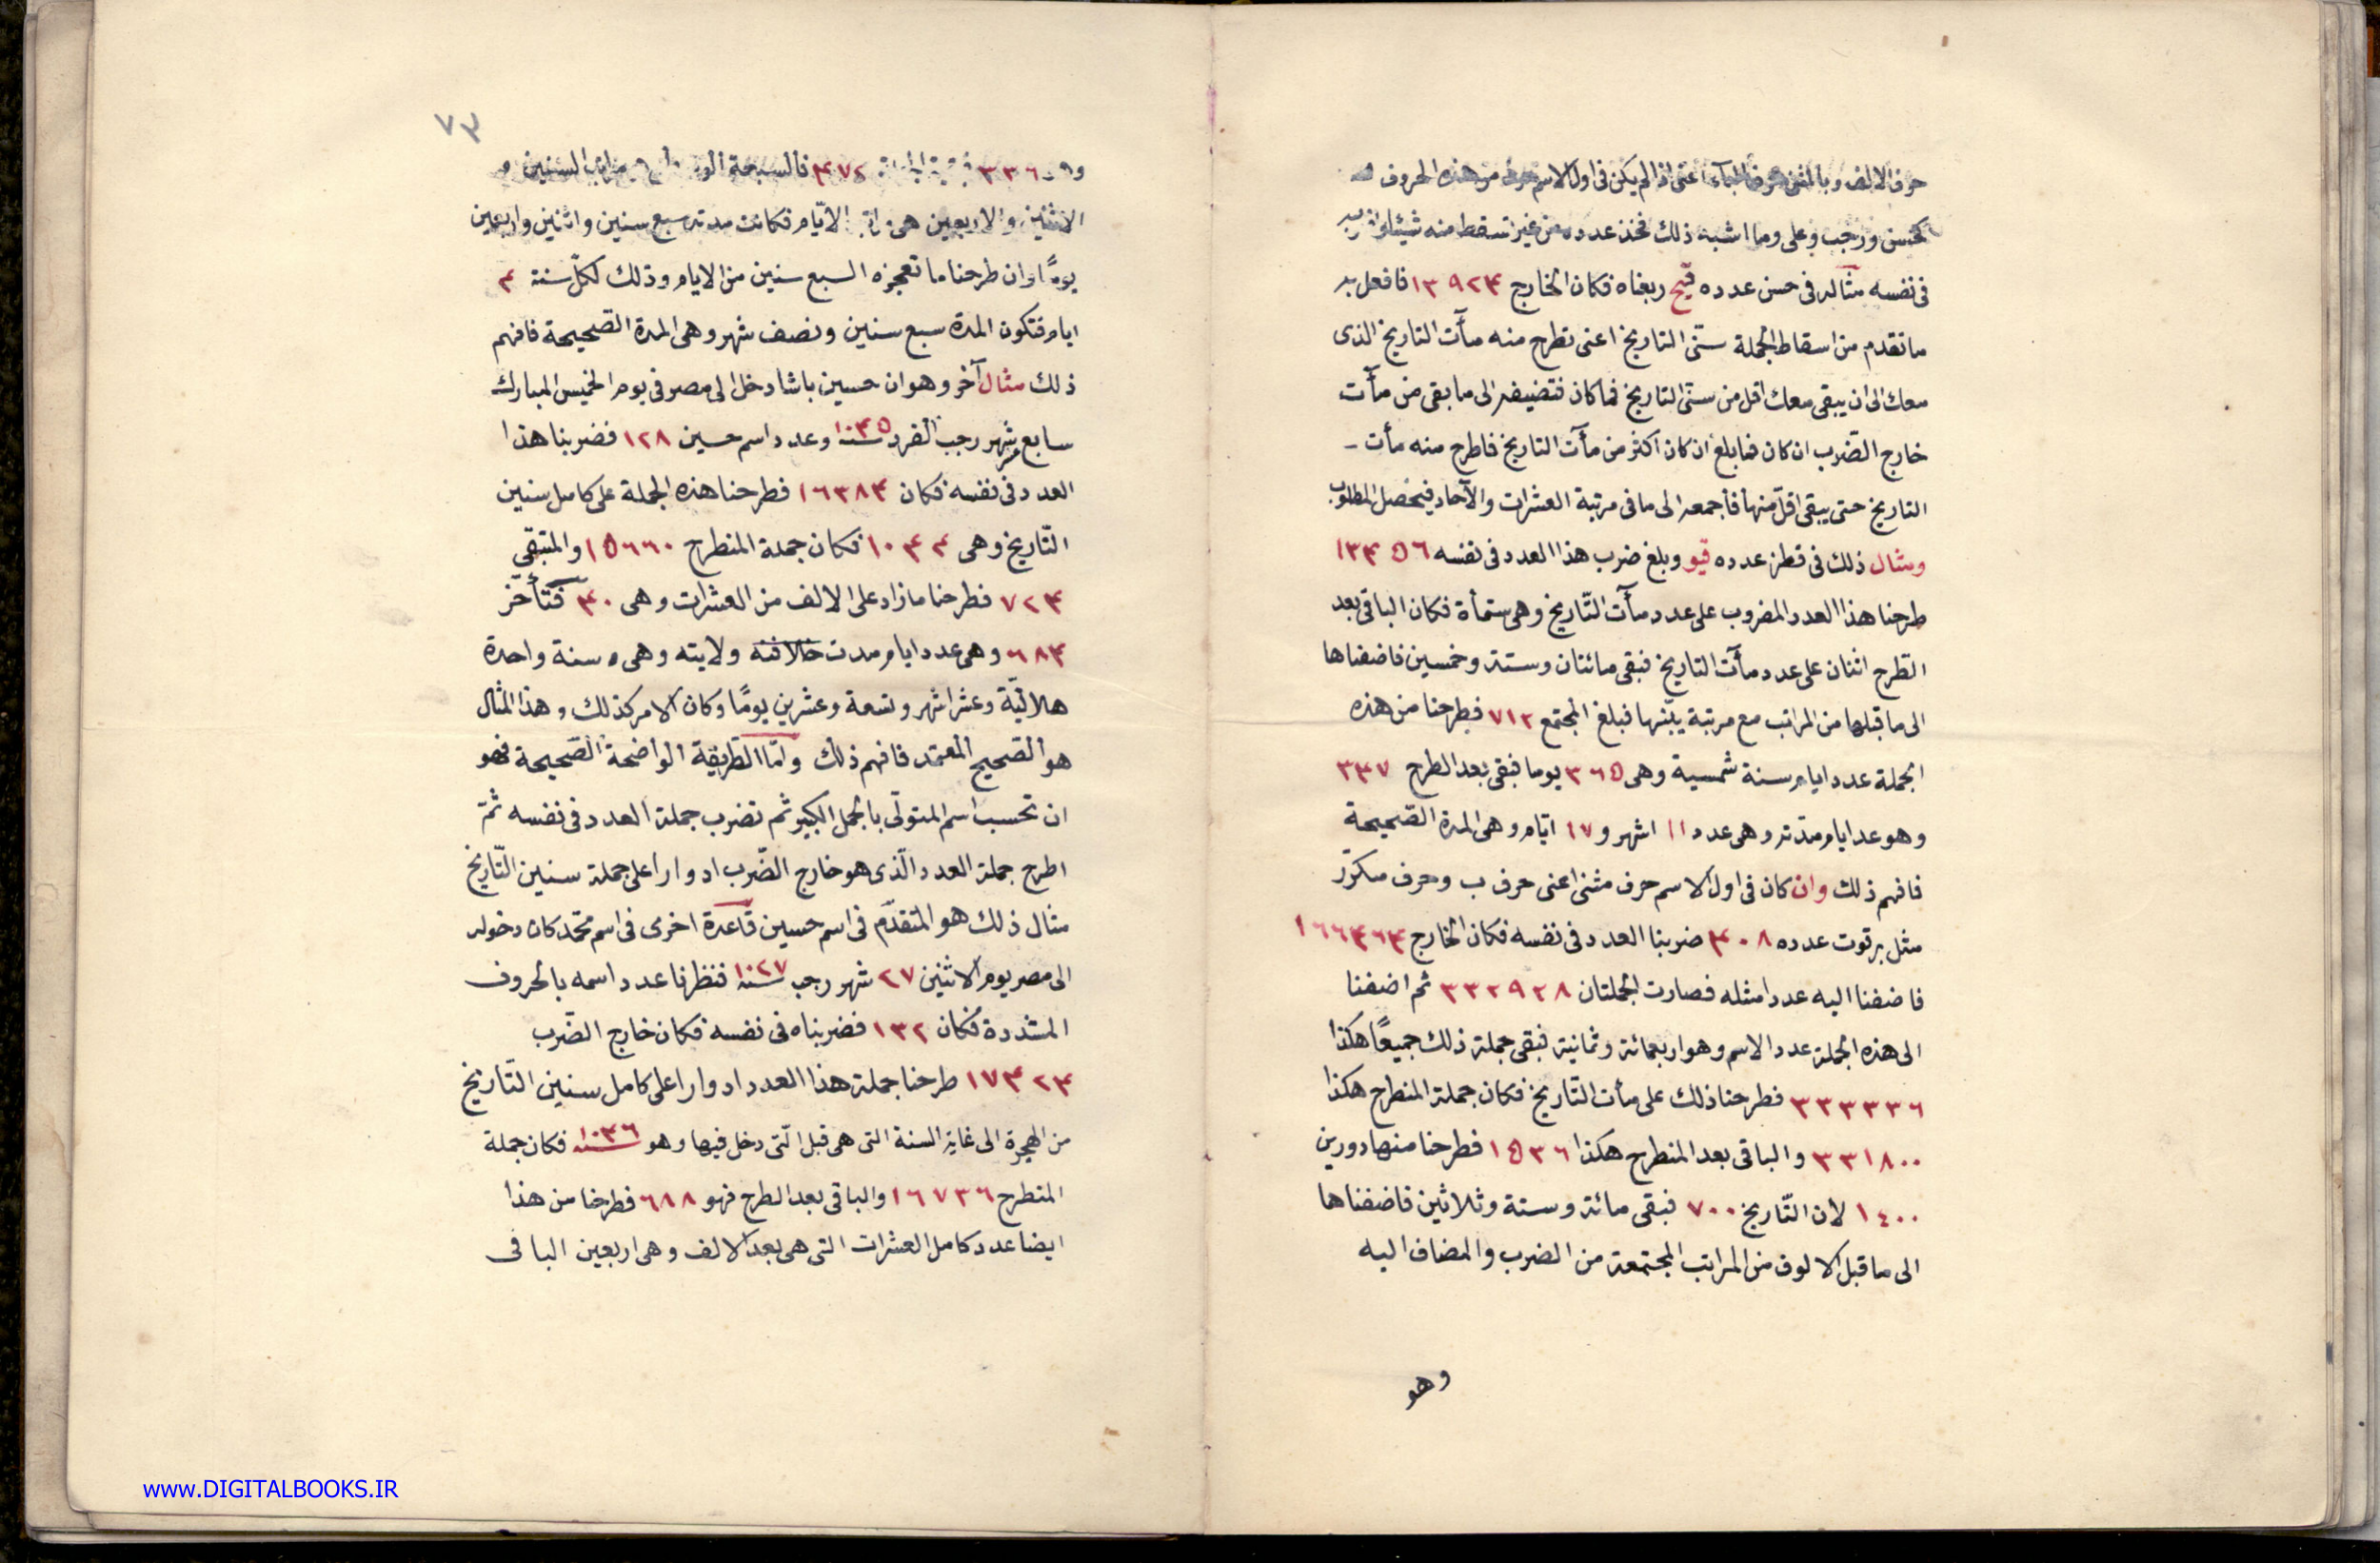 حرف الالف وبالمثنى حرف الباء اعنى اذا لم يكن فى اول الاسم حرف من هذه الحروف
كحسن ورجب وعلى وما اشبه ذلك فخذ عدده من غير تسقط منه شيئا واضربه
فى نفسه مثاله فى حسن عدده قيح ربعناه فكان الخارج ١٣٩٢٤ فافعل به
ما تقدم من اسقاط الجملة ستى التاريخ اعنى تطرح منه مآت التاريخ الذى
معك الى ان يبقى معك اقل من ستى التاريخ فما كان فتضيفه الى ما بقى من مآت
خارج الضرب ان كان فما بلغ ان كان اكثر من مآت التاريخ فاطرح منه مأت
التاريخ حتى يبقى اقل منها فأجمعه الى ما فى مرتبة العشرات والآحاد فيحصل المطلوب
ومثال ذلك فى قطز عدده قيو وبلغ ضرب هذا العدد فى نفسه ١٣٤٥٦
طرحنا هذا العدد المضروب على عدد مآت التّاريخ وهى ستمأة فكان الباقى بعد
الطرح اثنان على عدد مآت التاريخ فبقى مائتان وستة وخمسين فاضفناها
الى ما قبلها من المراتب مع مرتبة يبّنها فبلغ المجتمع ٧١٢ فطرحنا من هذه
الجملة عدد ايام سنة شمسية وهى ٣٦٥ يوما فبقى بعد الطرح ٣٤٧
وهو عد ايام مدّته وهى عدد ١١ اشهر و ١٧ ايّام وهى المدة الصّحيحة
فافهم ذلك وان كان فى اول الاسم حرف مثنى اعنى حرف ب وحرف مكرّر
مثل برقوت عدده ٤٠٨ ضربنا العدد فى نفسه فكان الخارج ١٦٦٤٦٤
فاضفنا اليه عددا مثله فصارت الجملتان ٣٣٢٩٢٨ ثم اضفنا
الى هذه الجملة عدد الاسم وهو اربعمائة وثمانية فبقى جملة ذلك جميعًا هكذا
٣٣٣٣٣٦ فطرحنا ذلك على مأت التّاريخ فكان جملة المنطرح هكذا
٣٣١٨٠٠ والباقى بعد المنطرح هكذا ١٥٣٦ فطرحنا منها دورين
١٤٠٠ لان التّاريخ ٧٠٠ فبقى مائة وستة وثلاثين فاضفناها
الى ما قبل الالوف من المراتب المجتمعة من الضرب والمضاف اليه
وهو
٧٣
٣٣٦ ٤٧٢ فالسبعة السنين
الاثنين والاربعين هى الايّام فكانت مدته سبع سنين واثنين واربعين
يومًا وان طرحنا ما تعجزه السبع سنين من الايام وذلك لكلّ سنة ٤
ايام فتكون المدة سبع سنين ونصف شهر وهى المدة الصّحيحة فافهم
ذلك مثال آخر وهو ان حسين باشا دخل الى مصر فى يوم الخميس المبارك
سابع شهر رجب الفرد سنة ١٠٤٥ وعدد اسم حسين ١٢٨ فضربنا هذا
العدد فى نفسه فكان ١٦٣٨٤ فطرحنا هذه الجملة على كامل سنين
التّاريخ وهى ١٠٤٤ فكان جملة المنطرح ١٥٦٦٠ والمتبقى
٧٢٤ فطرحنا ما زاد على الالف من العشرات وهى ٤٠ فتأخّر
٦٨٤ وهى عدد ايام مدت خلافته ولايته وهى سنة واحدة
هلاليّة وعشر اشهر وتسعة وعشرين يومًا وكان الامر كذلك وهذا المثال
هو الصّحيح المعتمد فافهم ذلك وامّا الطّريقة الواضحة الصّحيحة فهو
ان تحسب اسم المتولّى بالجمل الكبير ثم تضرب جملة العدد فى نفسه ثمّ
اطرح جملة العدد الّذى هو خارج الضّرب ادوارا على جملة سنين التّاريخ
مثال ذلك هو المتقدّم فى اسم حسين قاعدة اخرى فى اسم محمّد كان دخوله
الى مصر يوم الاثنين ٢٧ شهر رجب سنة ١٠٢٧ فنظرنا عدد اسمه بالحروف
المشددة فكان ١٣٢ فضربناه فى نفسه فكان خارج الضّرب
١٧٤٢٤ طرحنا جملة هذا العدد ادوارا على كامل سنين التّاريخ
من الهجرة الى غاية السنة التى هى قبل الّتى دخل فيها وهو سنة ١٠٤٦ فكان جملة
المنطرح ١٦٧٣٦ والباقى بعد الطرح فهو ٦٨٨ فطرحنا من هذا
ايضا عدد كامل العشرات التى هى بعد الالف وهى اربعين الباقى
www.DIGITALBOOKS.IR